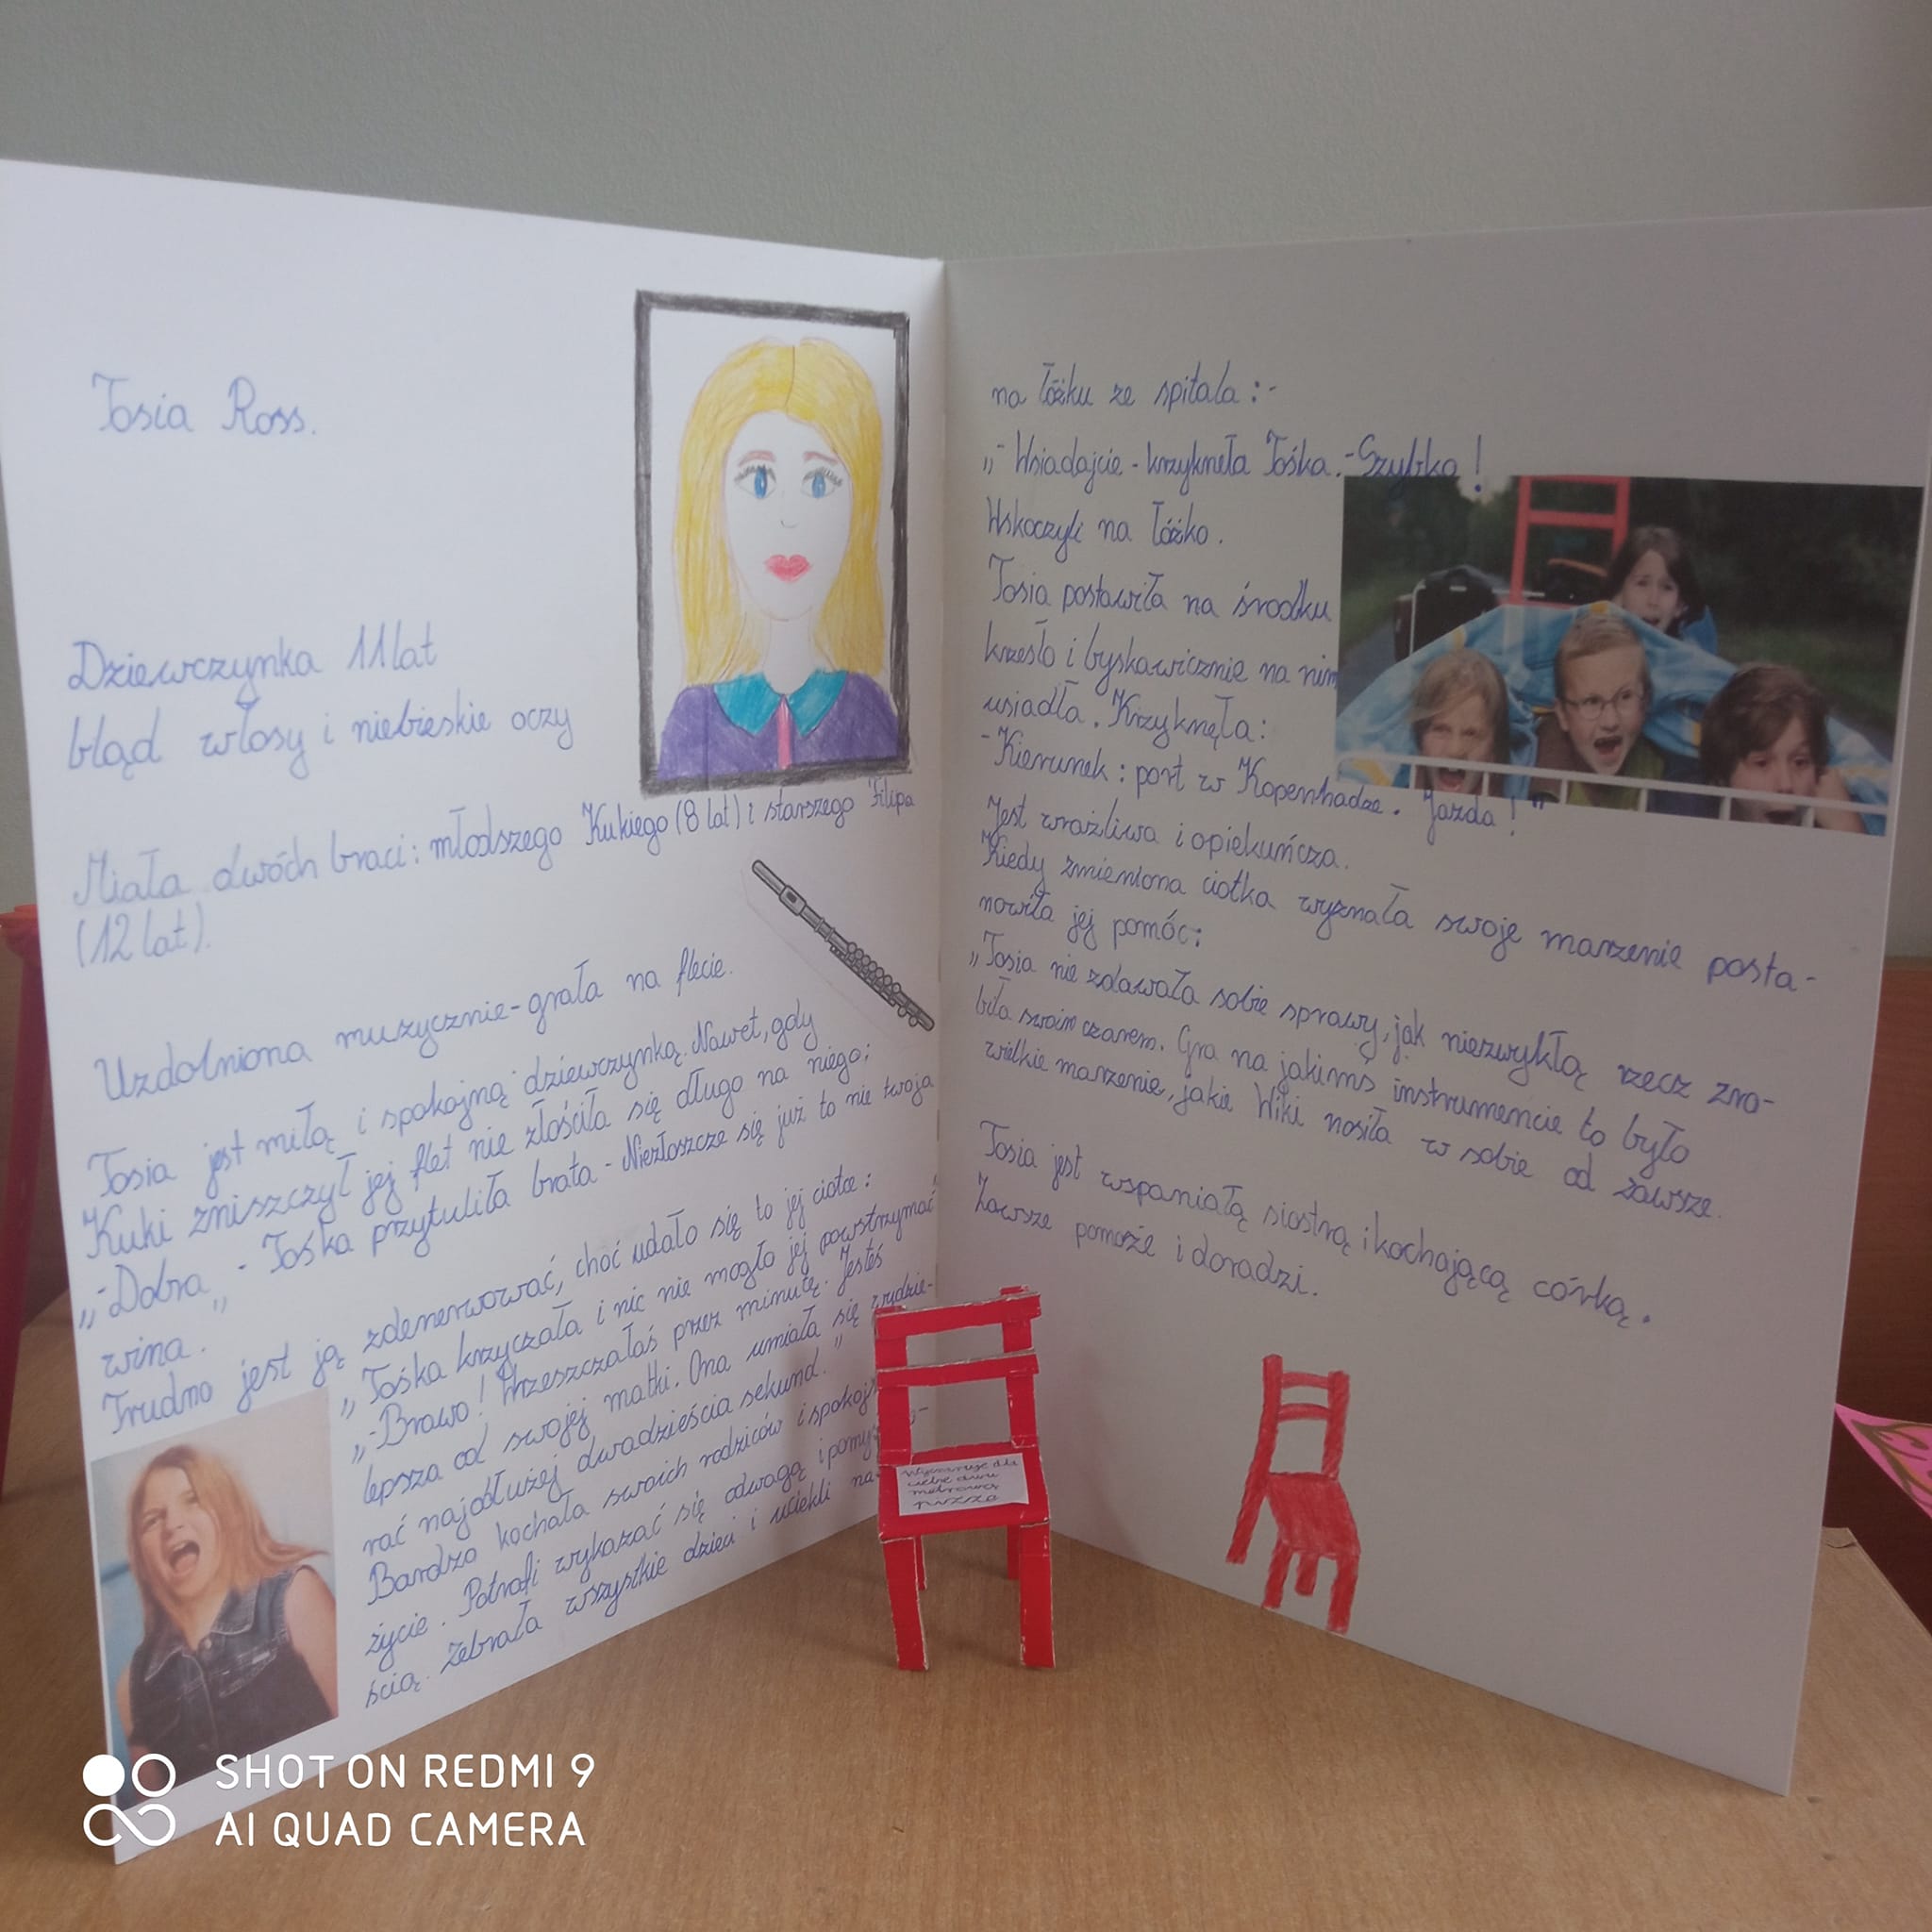 Tosia Ross.
Dziewczynka 11 lat
bląd włosy i niebieskie oczy
Miała dwóch braci: młodszego Kukiego (8 lat) i starszego Filipa
(12 lat).
Uzdolniona muzycznie - grała na flecie.
Tosia jest miłą i spokojną dziewczynką. Nawet, gdy
Kuki zniszczył jej flet nie złościła się długo na niego:
„-Dobra - Tośka przytuliła brata - Niezłoszcze się już to nie twoja
wina."
Trudno jest ją zdenerwować, choć udało się to jej ciotce:
„Tośka krzyczała i nic nie mogło jej powstrzymać"
„-Brawo! Wrzeszczałaś przez minutę. Jesteś
lepsza od swojej matki. Ona umiała się wydzie-
rać najdłużej dwadzieścia sekund."
Bardzo kochała swoich rodziców i spokoj
życie. Potrafi wykazać się odwagą i pomy
ścią. Zebrała wszystkie dzieci i uciekli na
na łóżku ze spitala:-
„- Wsiadajcie - krzyknęła Tośka. - Szybko!
Wskoczyli na łóżko.
Tosia postawiła na środku
krzesło i byskawicznie na nim
usiadła. Krzyknęła:
-Kierunek: port w Kopenhadze. Jazda!"
Jest wrażliwa i opiekuńcza.
Kiedy zmieniona ciotka wyznała swoje marzenie posta-
nowiła jej pomóc:
„Tosia nie zdawała sobie sprawy, jak niezwykłą rzecz zro-
biła swoim czarem. Gra na jakimś instrumencie to było
wielkie marzenie, jakie Wiki nosiła w sobie od zawsze.
Tosia jest wspaniałą siostrą i kochającą córką.
Zawsze pomoże i doradzi.
Wyczaruję dla
ciebie dwu
metrową
SHOT ON REDMI 9
AI QUAD CAMERA